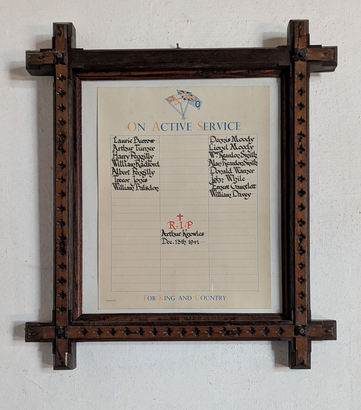 ON ACTIVE SERVICE
Laurie Barrow
Arthur Turner
Harry Peggilly
William Radford
Albert Peggilly
Trevor Jones
William Palsdon
Dennis Moody
Lionel Moody
Wm Reardon Smith
Alan Reardon Smith
Donald Warner
John While
Ernest Gauntlett
William Davey
R·I·P
Arthur Knowles
Dec. 13th 1941
FOR KING AND COUNTRY